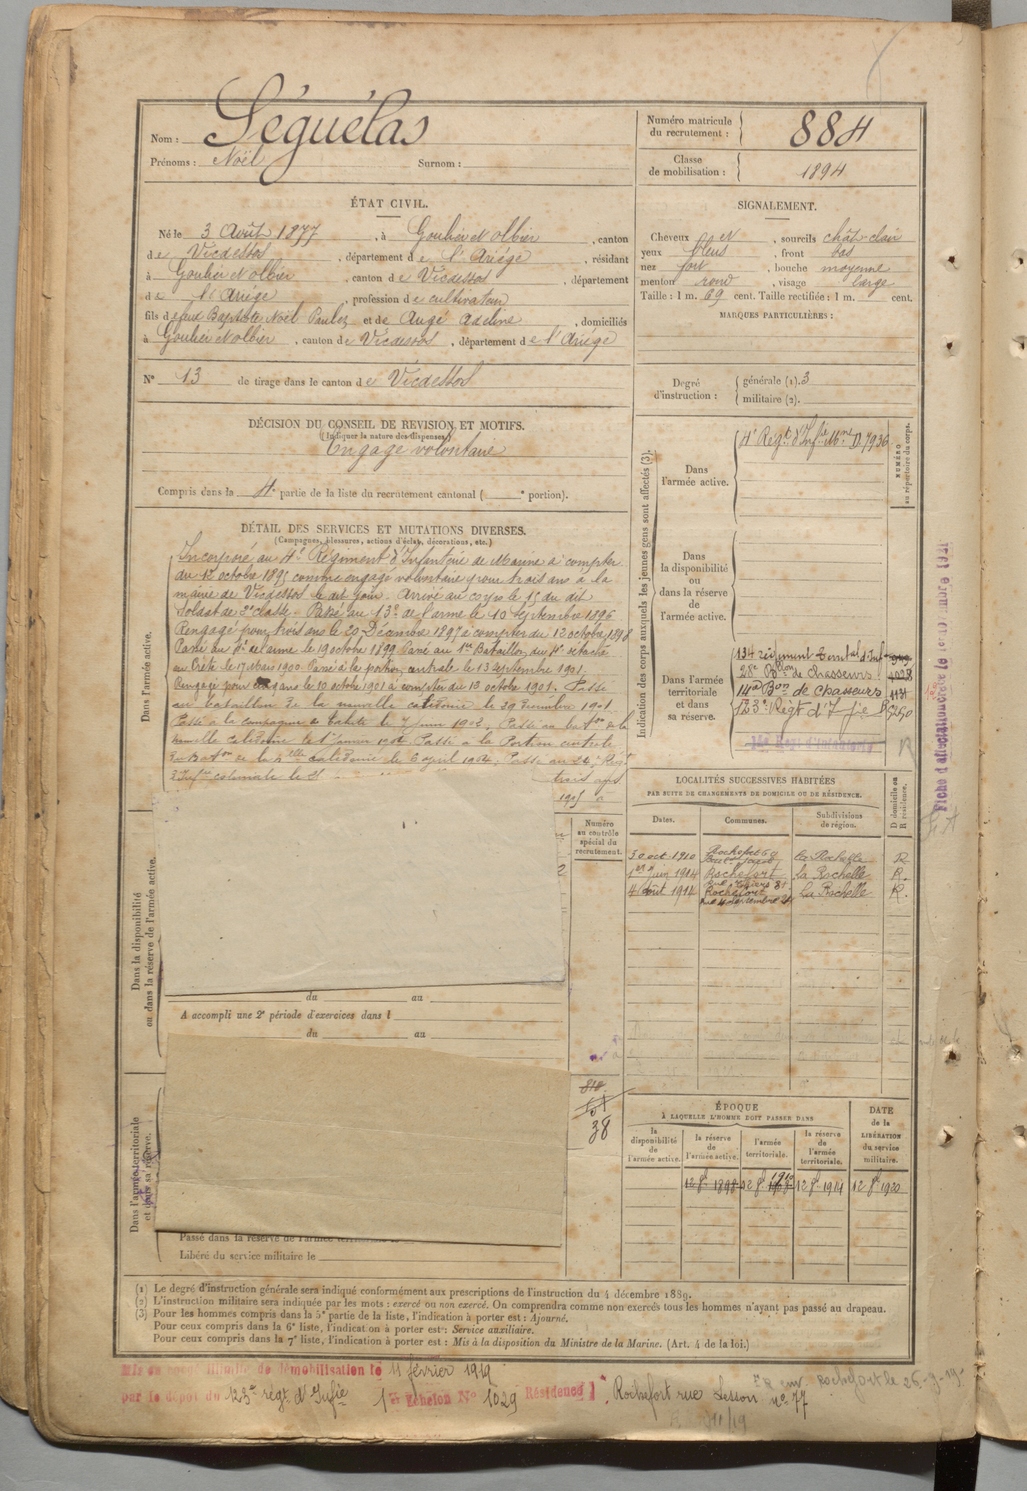 Nom : Séguélas
Prénoms : Noël Surnom :
Numéro matricule du recrutement : 884
Classe de mobilisation : 1894
ÉTAT CIVIL.
Né le 3 Août 1877, à Goulier et Olbier, canton
de Vicdessos, département de l'Ariège, résidant
à Goulier et Olbier, canton de Vicdessos, département
de l'Ariège, profession de cultivateur
fils de feu Baptiste Noël Paulo et de Augé Adeline, domiciliés
à Goulier et Olbier, canton de Vicdessos, département de l'Ariège
N° 13 de tirage dans le canton de Vicdessos
SIGNALEMENT.
Cheveux et, sourcils chât-clair
yeux bleus, front bas
nez fort, bouche moyenne
menton rond, visage large
Taille : 1 m. 69 cent. Taille rectifiée : 1 m. cent.
MARQUES PARTICULIÈRES :
Degré d'instruction : générale (1). 3
militaire (2).
DÉCISION DU CONSEIL DE REVISION ET MOTIFS.
(Indiquer la nature des dispenses)
Engagé volontaire
Compris dans la 4e partie de la liste du recrutement cantonal ( e portion).
DÉTAIL DES SERVICES ET MUTATIONS DIVERSES.
(Campagnes, blessures, actions d'éclat, décorations, etc.)
Incorporé au 4e Régiment d'Infanterie de Marine à compter
du 12 octobre 1895 comme engagé volontaire pour trois ans à la
mairie de Vicdessos le dit jour. Arrivé au corps le 15 du dit
Soldat de 2e classe. Passé au 13e de l'arme le 10 septembre 1896
Rengagé pour trois ans le 20 Décembre 1897 à compter du 12 octobre 1898
Passé au de l'arme le 19 octobre 1899 Passé au 1er Bataillon du 4e détaché
en Crète le 17 Mars 1900. Passé à la portion centrale le 13 septembre 1901.
Rengagé pour ans le 10 octobre 1901 à compter du 12 octobre 1901. Passé
au bataillon de la nouvelle calédonie le 29 Décembre 1901
Passé à la compagnie de Tahiti le 7 Juin 1902. Passé au baton de la
nouvelle calédonie le 1er Janvier 1904 Passé à la Portion centrale
du Baton de la nelle calédonie le 6 april 1904. Passé au Régt
d'Infie coloniale le 21
trois ans
1905 à
Dans l'armée active.
Dans la disponibilité ou dans la réserve de l'armée active.
Dans l'armée territoriale et dans sa réserve.
Numéro au contrôle spécial du recrutement.
du au
A accompli une 2e période d'exercices dans l
du au
818
38
Passé dans la réserve de l'armée territoriale le
Libéré du service militaire le
Indication des corps auxquels les jeunes gens sont affectés (3).
NUMÉRO au répertoire du corps.
Dans l'armée active.
4e Régt d'Infie Mne D 7936
Dans la disponibilité ou dans la réserve de l'armée active.
Dans l'armée territoriale et dans sa réserve.
134 régiment territal d'Infie
28e Bllon de Chasseurs 4028
14e Bon de Chasseurs 1131
123e Régt d'Infie
Fiche d'affectation
LOCALITÉS SUCCESSIVES HABITÉES
PAR SUITE DE CHANGEMENTS DE DOMICILE OU DE RÉSIDENCE.
Dates. Communes. Subdivisions de région. D domicile ou R résidence.
30 oct 1910 Rochefort 68 la Rochelle R
1er Juin 1914 Rochefort la Rochelle R.
4 Août 1914 Rochefort La Rochelle R.
ÉPOQUE
À LAQUELLE L'HOMME DOIT PASSER DANS
la disponibilité de l'armée active. la réserve de l'armée active. l'armée territoriale. la réserve de l'armée territoriale.
DATE de la LIBÉRATION du service militaire.
12 8bre 1898 12 8bre 1910 12 8bre 1914 12 8bre 1920
(1) Le degré d'instruction générale sera indiqué conformément aux prescriptions de l'instruction du 4 décembre 1889.
(2) L'instruction militaire sera indiquée par les mots : exercé ou non exercé. On comprendra comme non exercés tous les hommes n'ayant pas passé au drapeau.
(3) Pour les hommes compris dans la 5e partie de la liste, l'indication à porter est : Ajourné.
Pour ceux compris dans la 6e liste, l'indication à porter est : Service auxiliaire.
Pour ceux compris dans la 7e liste, l'indication à porter est : Mis à la disposition du Ministre de la Marine. (Art. 4 de la loi.)
Mis en congé illimité de démobilisation le 11 février 1919
par le dépôt du 123e régt d'Infie 1er Echelon N° 1029 Résidence Rochefort rue Lesson n° 77